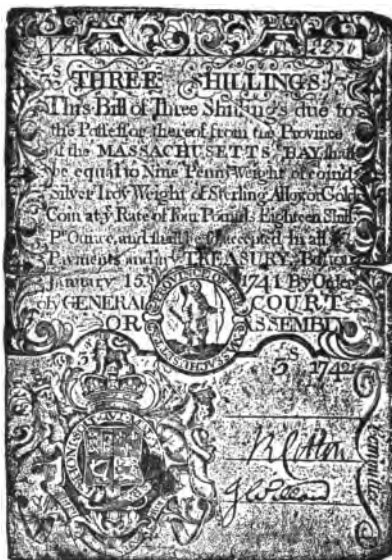 THREE SHILLINGS
This Bill of Three Shillings due to
the Possessor thereof from the Province
of the MASSACHUSETTS BAY, shall
be equal to Nine Penny Weight of coin'd
Silver Troy Weight of Sterling Alloy, or Gold
Coin at y Rate of Four Pounds Eighteen Shill
Pr Ounce, and shall be accepted in all
Payments and in y TREASURY. Boston
January 15 1741 By Order
of y GENERAL COURT
OR ASSEMBLY
3 S
3 1742
Committee